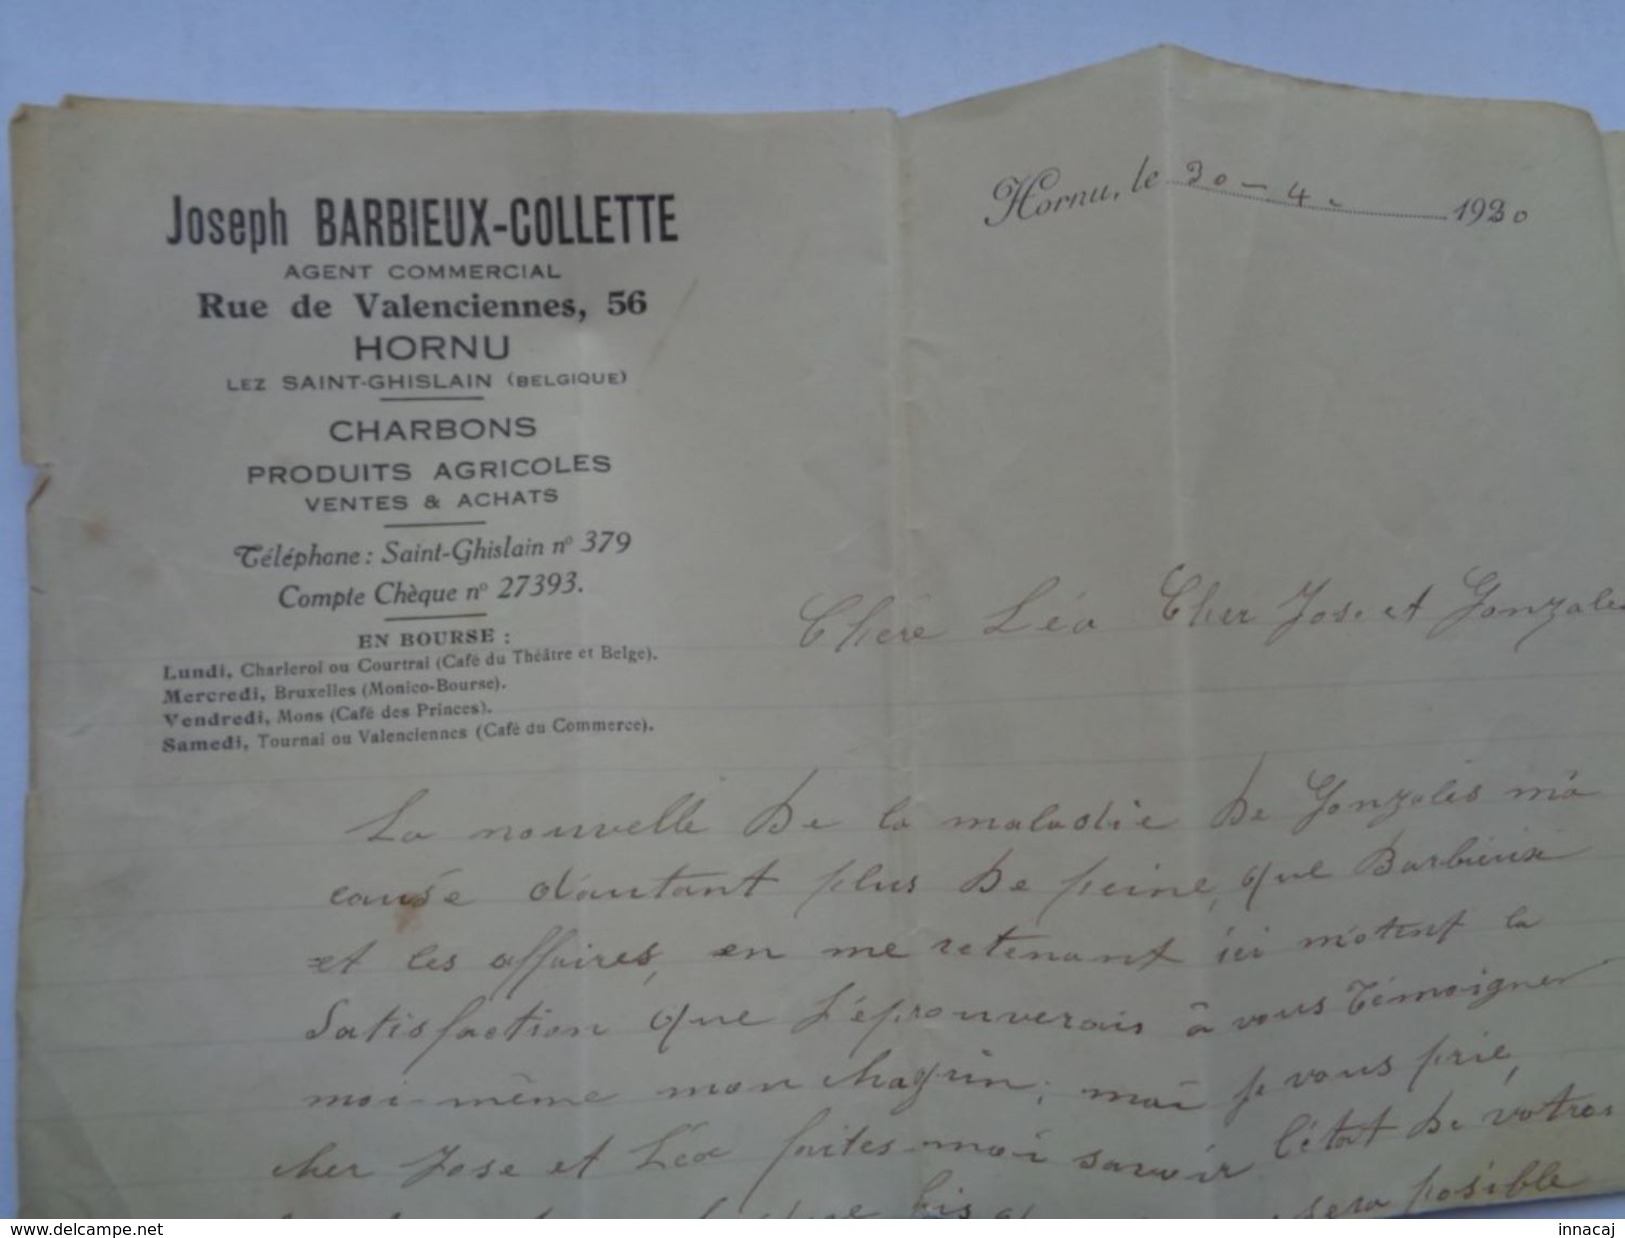 Joseph BARBIEUX-COLLETTE
AGENT COMMERCIAL
Rue de Valenciennes, 56
HORNU
LEZ SAINT-GHISLAIN (BELGIQUE)
CHARBONS
PRODUITS AGRICOLES
VENTES & ACHATS
Téléphone : Saint-Ghislain nº 379
Compte Chèque nº 27393.
EN BOURSE :
Lundi, Charleroi ou Courtrai (Café du Théâtre et Belge).
Mercredi, Bruxelles (Monico-Bourse).
Vendredi, Mons (Café des Princes).
Samedi, Tournai ou Valenciennes (Café du Commerce).
Hornu, le 30 - 4 - 1930
Chère Léa Cher Jose et Gonzales
La nouvelle de la maladie de Gonzalès m'a
causé d'autant plus de peine, que Barbieux
et les affaires, en me retenant ici m'otent la
satisfaction que j'éprouverais à vous témoigner
moi-même mon chagrin; mais je vous prie,
cher Jose et Léa faites-moi savoir l'état de votres
sera possible
www.delcampe.net
innacaj